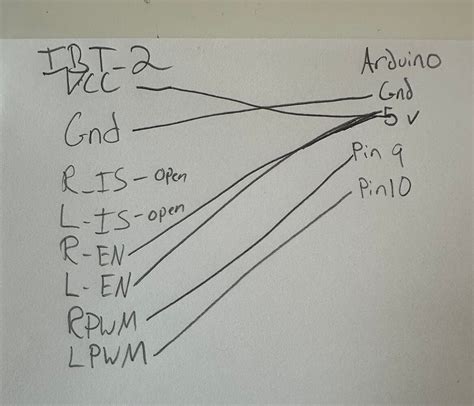 IBT-2
Arduino
VCC
Gnd
Gnd
5 v
R_IS - open
Pin 9
L-IS - open
Pin10
R-EN
L-EN
RPWM
LPWM